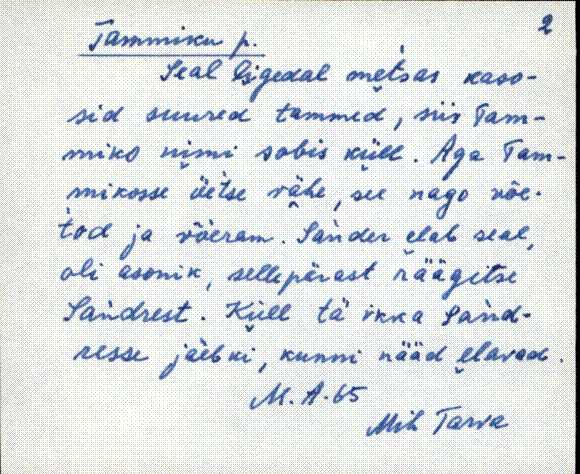 2
Tammiku p.
Seal ligedal metsas kaso-
sid suured tammed, siis Tam-
miko nimi sobis küll. Aga Tam-
mikosse üeĺtse vähe, see nago võe-
tod ja võeram. Sander elab seal,
oli asonik, sellepärast räägitse
Sańdrest. Küll tä ikka Sańd-
resse jäeb ki, kunni nääd elavad.
M. A. 65
Mih Tarva